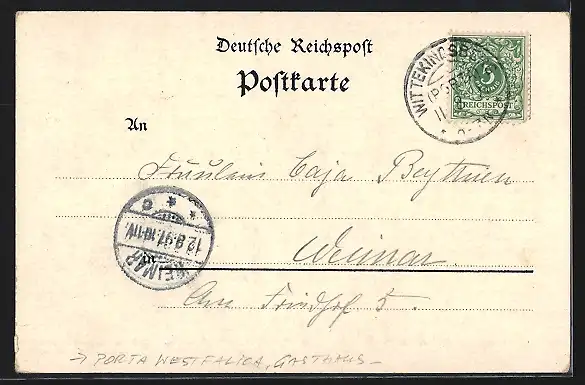 Deutsche Reichspost
Postkarte
5
REICHSPOST
WITTEKINDSBERG
(PORTA)
11 8
An
Fräulein Caja Beythien
Weimar
WEIMAR
12.8.97.10-11V.
in
Am Friedhof 5.
→ PORTA WESTFALICA, GASTHAUS -